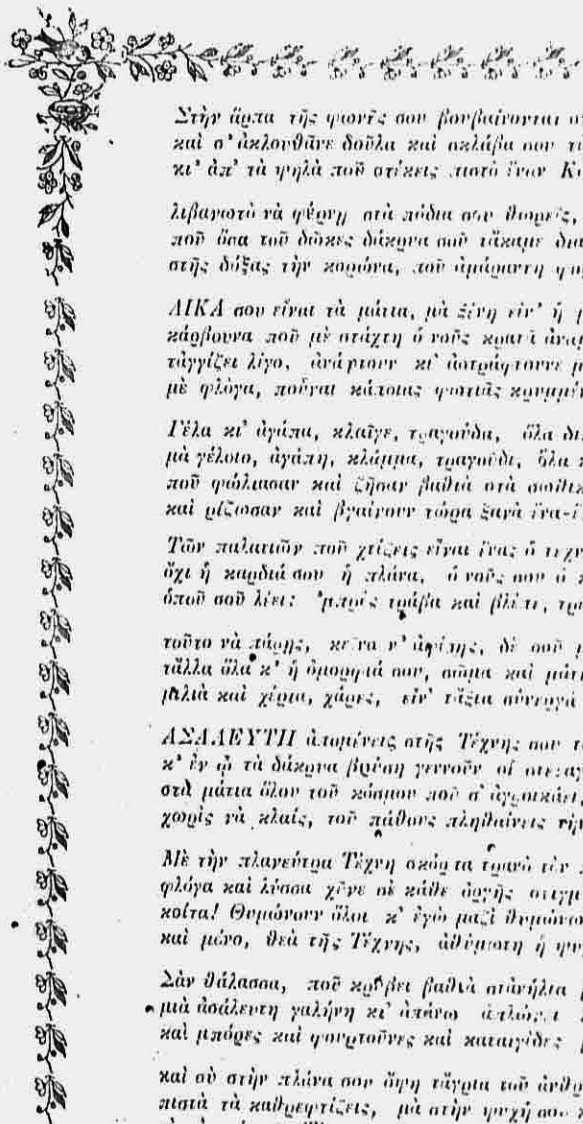 Στὴν ἅρπα τῆς φωνῆς σου βουβαίνονται
καὶ σ' ἀκλουθᾶνε δούλα καὶ σκλάβα σου
κι' ἀπ' τὰ ψηλὰ ποῦ στέκεις πιστὸ ἕναν
λιβανιστὸ νὰ φέρνῃ στὰ πόδια σου θωρεῖς,
ποῦ ὅσα τοῦ δῶκες δάκρυα σοῦ τἄκαμε
στῆς δόξας τὴν κορώνα, ποῦ ἀμάραντη
ΔΙΚΑ σου εἶναι τὰ μάτια, μὰ ξένη εἶν' ἡ
κάρβουνα ποῦ μὲ στάχτη ὁ νοῦς κρατεῖ
τἀγγίζει λίγο, ἀνάφτουν κι' ἀστράφτουνε
μὲ φλόγα, ποὖναι κάποιας φωτιᾶς
Γέλα κι' ἀγάπα, κλαῖγε, τραγούδα, ὅλα
μὰ γέλοιο, ἀγάπη, κλάμμα, τραγοῦδι, ὅλα
ποῦ φώλιασαν καὶ ζῆσαν βαθιὰ στὰ
καὶ ρίζωσαν καὶ βγαίνουν τώρα ξανὰ
Τῶν παλατιῶν ποῦ χτίζεις εἶναι ἕνας ὁ
ὄχι ἡ καρδιά σου ἡ πλάνα, ὁ νοῦς σου ὁ
ὁποῦ σοῦ λέει: 'μπρὸς τράβα καὶ βλέπε,
τοῦτο νὰ πάρῃς, κεῖνο ν' ἀφίσῃς, δὲ σοῦ
τἄλλα ὅλα κ' ἡ ὀμορφιά σου, σῶμα καὶ
μιλιὰ καὶ χέρια, χάρες, εἶν' τἄξια σύνεργά
ΑΣΑΛΕΥΤΗ ἀπομένεις στῆς Τέχνης σου
κ' ἐν ᾧ τὰ δάκρυα βρύση γεννοῦν οἱ
στὰ μάτια ὅλου τοῦ κόσμου ποῦ σ' ἀγροικάει,
χωρὶς νὰ κλαίς, τοῦ πάθους πληθαίνεις
Μὲ τὴν πλανεύτρα Τέχνη σκόρπα τρανὸ τὸν
φλόγα καὶ λύσσα χῦνε σὲ κάθε ὀργῆς
κοίτα! Θυμώνουν ὅλοι κ' ἐγὼ μαζὶ θυμώνω
καὶ μόνο, θεὰ τῆς Τέχνης, ἀθύμωτη ἡ
Σὰν θάλασσα, ποῦ κρύβει βαθιὰ στἀνήλια
μιὰ ἀσάλευτη γαλήνη κι' ἀπάνω ἁπλώνει
καὶ μπόρες καὶ φουρτοῦνες καὶ καταιγίδες
καὶ σὺ στὴν πλάνα σου ὄψη τἄγρια τοῦ
πιστὰ τὰ καθρεφτίζεις, μὰ στὴν ψυχή σου